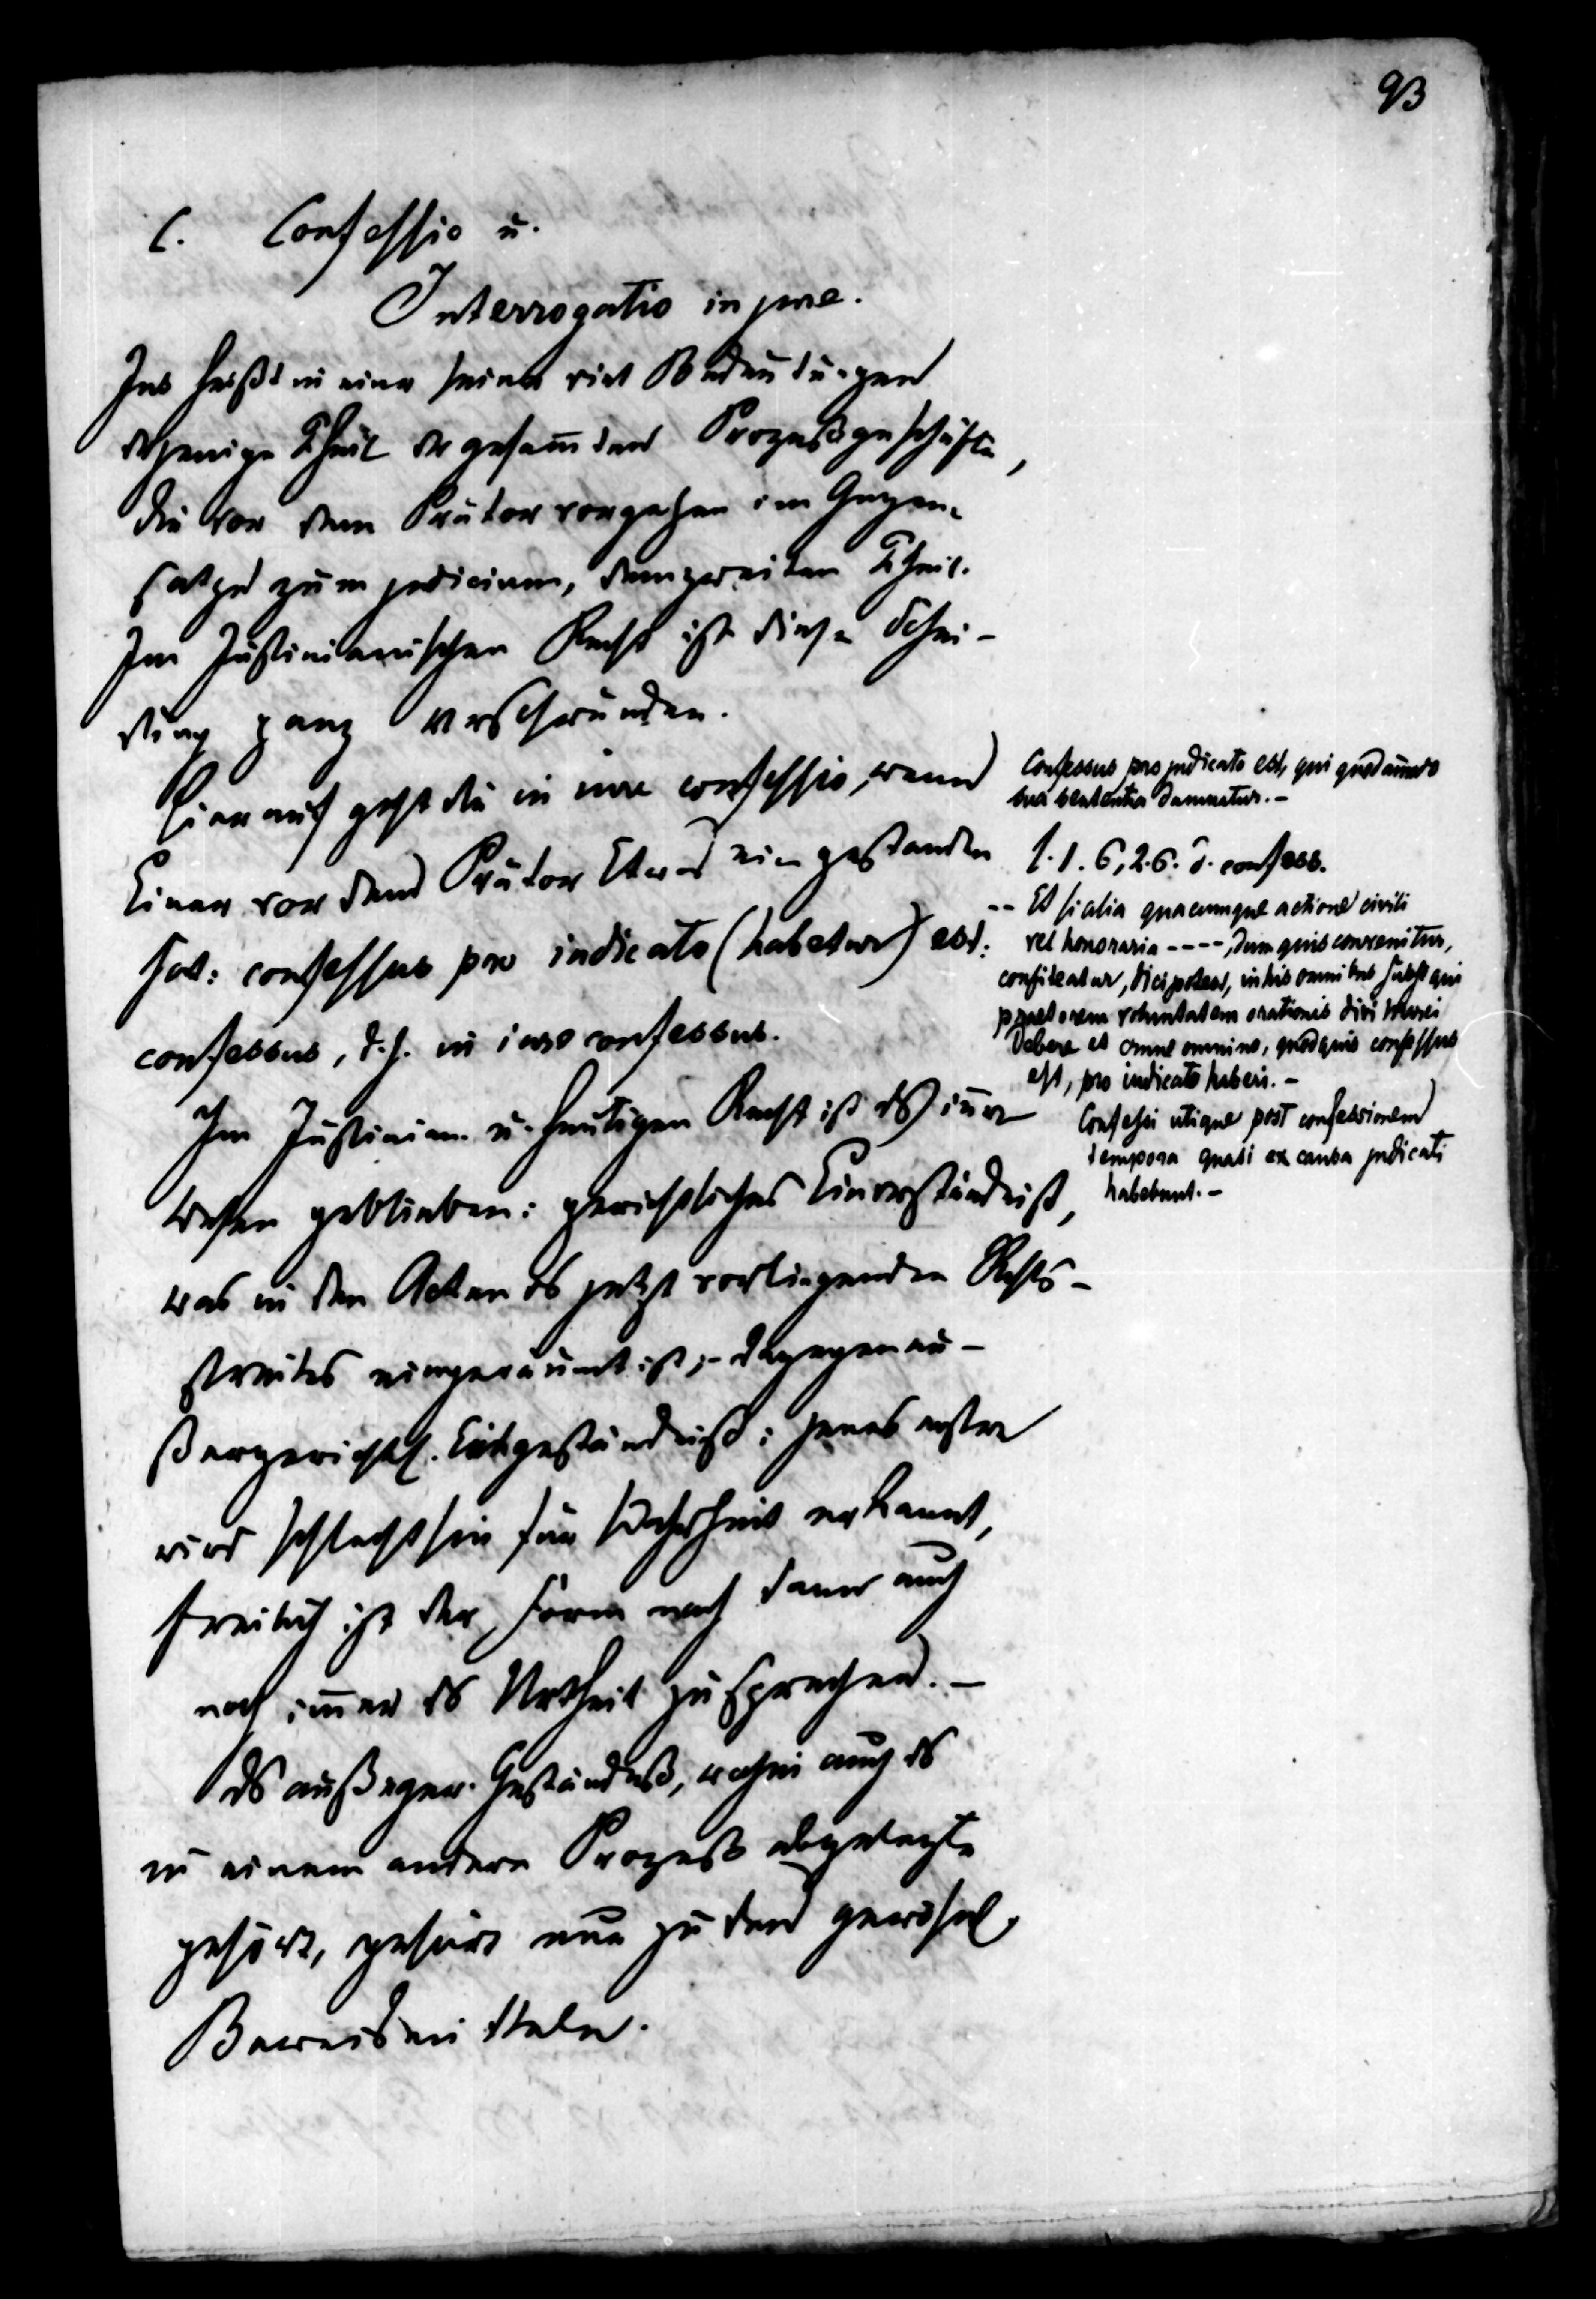 93
C. Confessio u.
Interrogatio in jure.
Jus heißt in einer seiner viel Bedeutungen
derjenige Theil der gesam̅ten Prozeßgeschäfte,
die vor dem Prätor vorgehen im Gegen-
satze zum judicium, dem zweiten Theil.
Im Justinianischen Recht ist diese Schei-
dung ganz verschwunden.
Hierauf geht die in iure confessio, wenn
Einer vor dem Prätor Etwas eingestanden
hat: confessus pro iudicato (habetur) est.
confessus, d. h. in iure confessus.
Im Justinian. u. heutigen Recht ist ds
Wesen geblieben: gerichtliches Einverständniß,
was in den Acten ds jetzt vorliegenden Rchts-
streites eingeräumt ist; - dagegen au-
ßergerichtl. Eingeständniß; jenes erstere
wird schlechthin für Wahrheit erkannt,
freilich ist der Form nach dann auch
noch im̅er ds Urtheil zu sprechen. -
Ds außerger. Geständniß, wohin auch ds
in einem andern Prozeß abgelegte
gehört, gehört nur zu den
Beweismitteln.
Confessus pro judicato est, qui quodammodo
sua sententia damnatur. -
l. 1. 6, 2. 6. d. confess.
-- Et si alia quacumque actione civili
vel honoraria ----, dum quis convenitur,
confiteatur, dici potest, in his omnibus subsequi
praetorem voluntatem orationis divi Marci
debere et omne omnino, quod quis confessus
est, pro iudicato haberi. -
Confessi utique post confessionem
tempora quasi ex causa judicati
habebunt. -